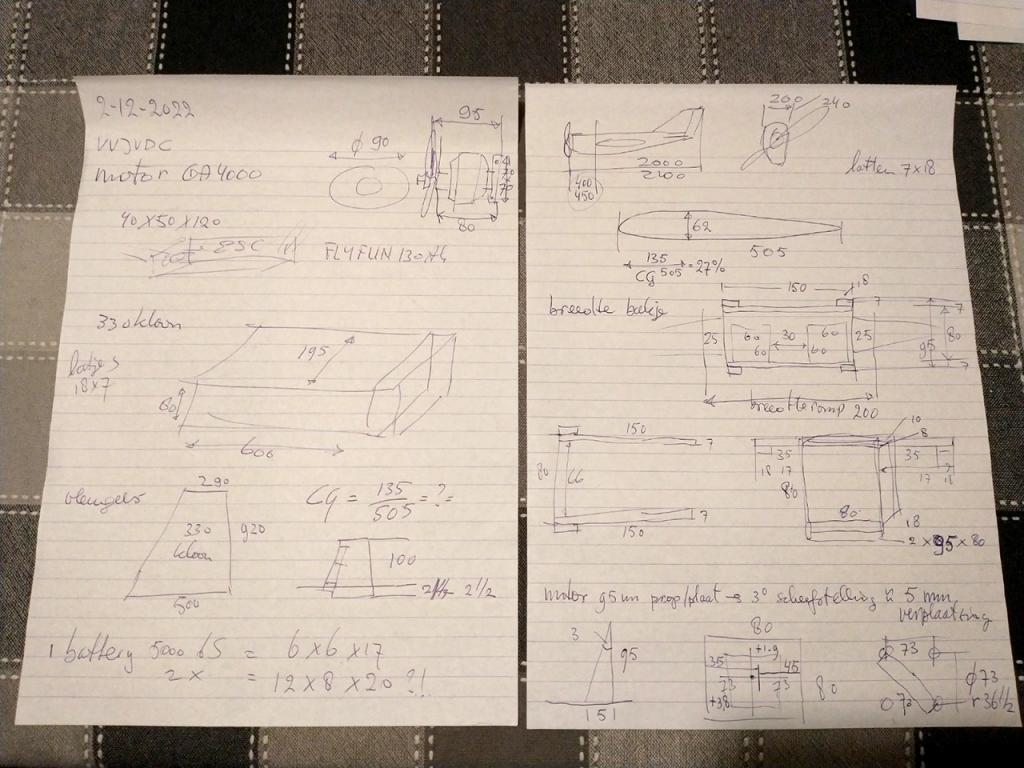 2-12-2022
VVJVDC
motor QA4000
ϕ 90
95
80
40x50x120
ESC
FLYFUN 130A
330 kloon
latjes
18x7
195
60
600
vleugels
290
330
kloon
920
500
CG = 135/505 = ?
100
2 1/2
1 battery 5000 6S = 6x6x17
2x = 12x8x20 ?!
2000
2100
400
450
200
240
latten 7x18
62
505
135/505 = 27%
CG
breedte bakje
150
18
7
7
25
60
60
30
60
60
25
95
80
7
breedte romp 200
150
7
80
66
150
7
10
8
35
18 17
80
35
17 18
80
18
2 x 95 x 80
motor 95 mm prop/plaat → 3° scheefstelling ≈ 5 mm
verplaatsing
3
95
151
80
+1.9
35
45
73
73
+38
80
73
ϕ73
r 36 1/2